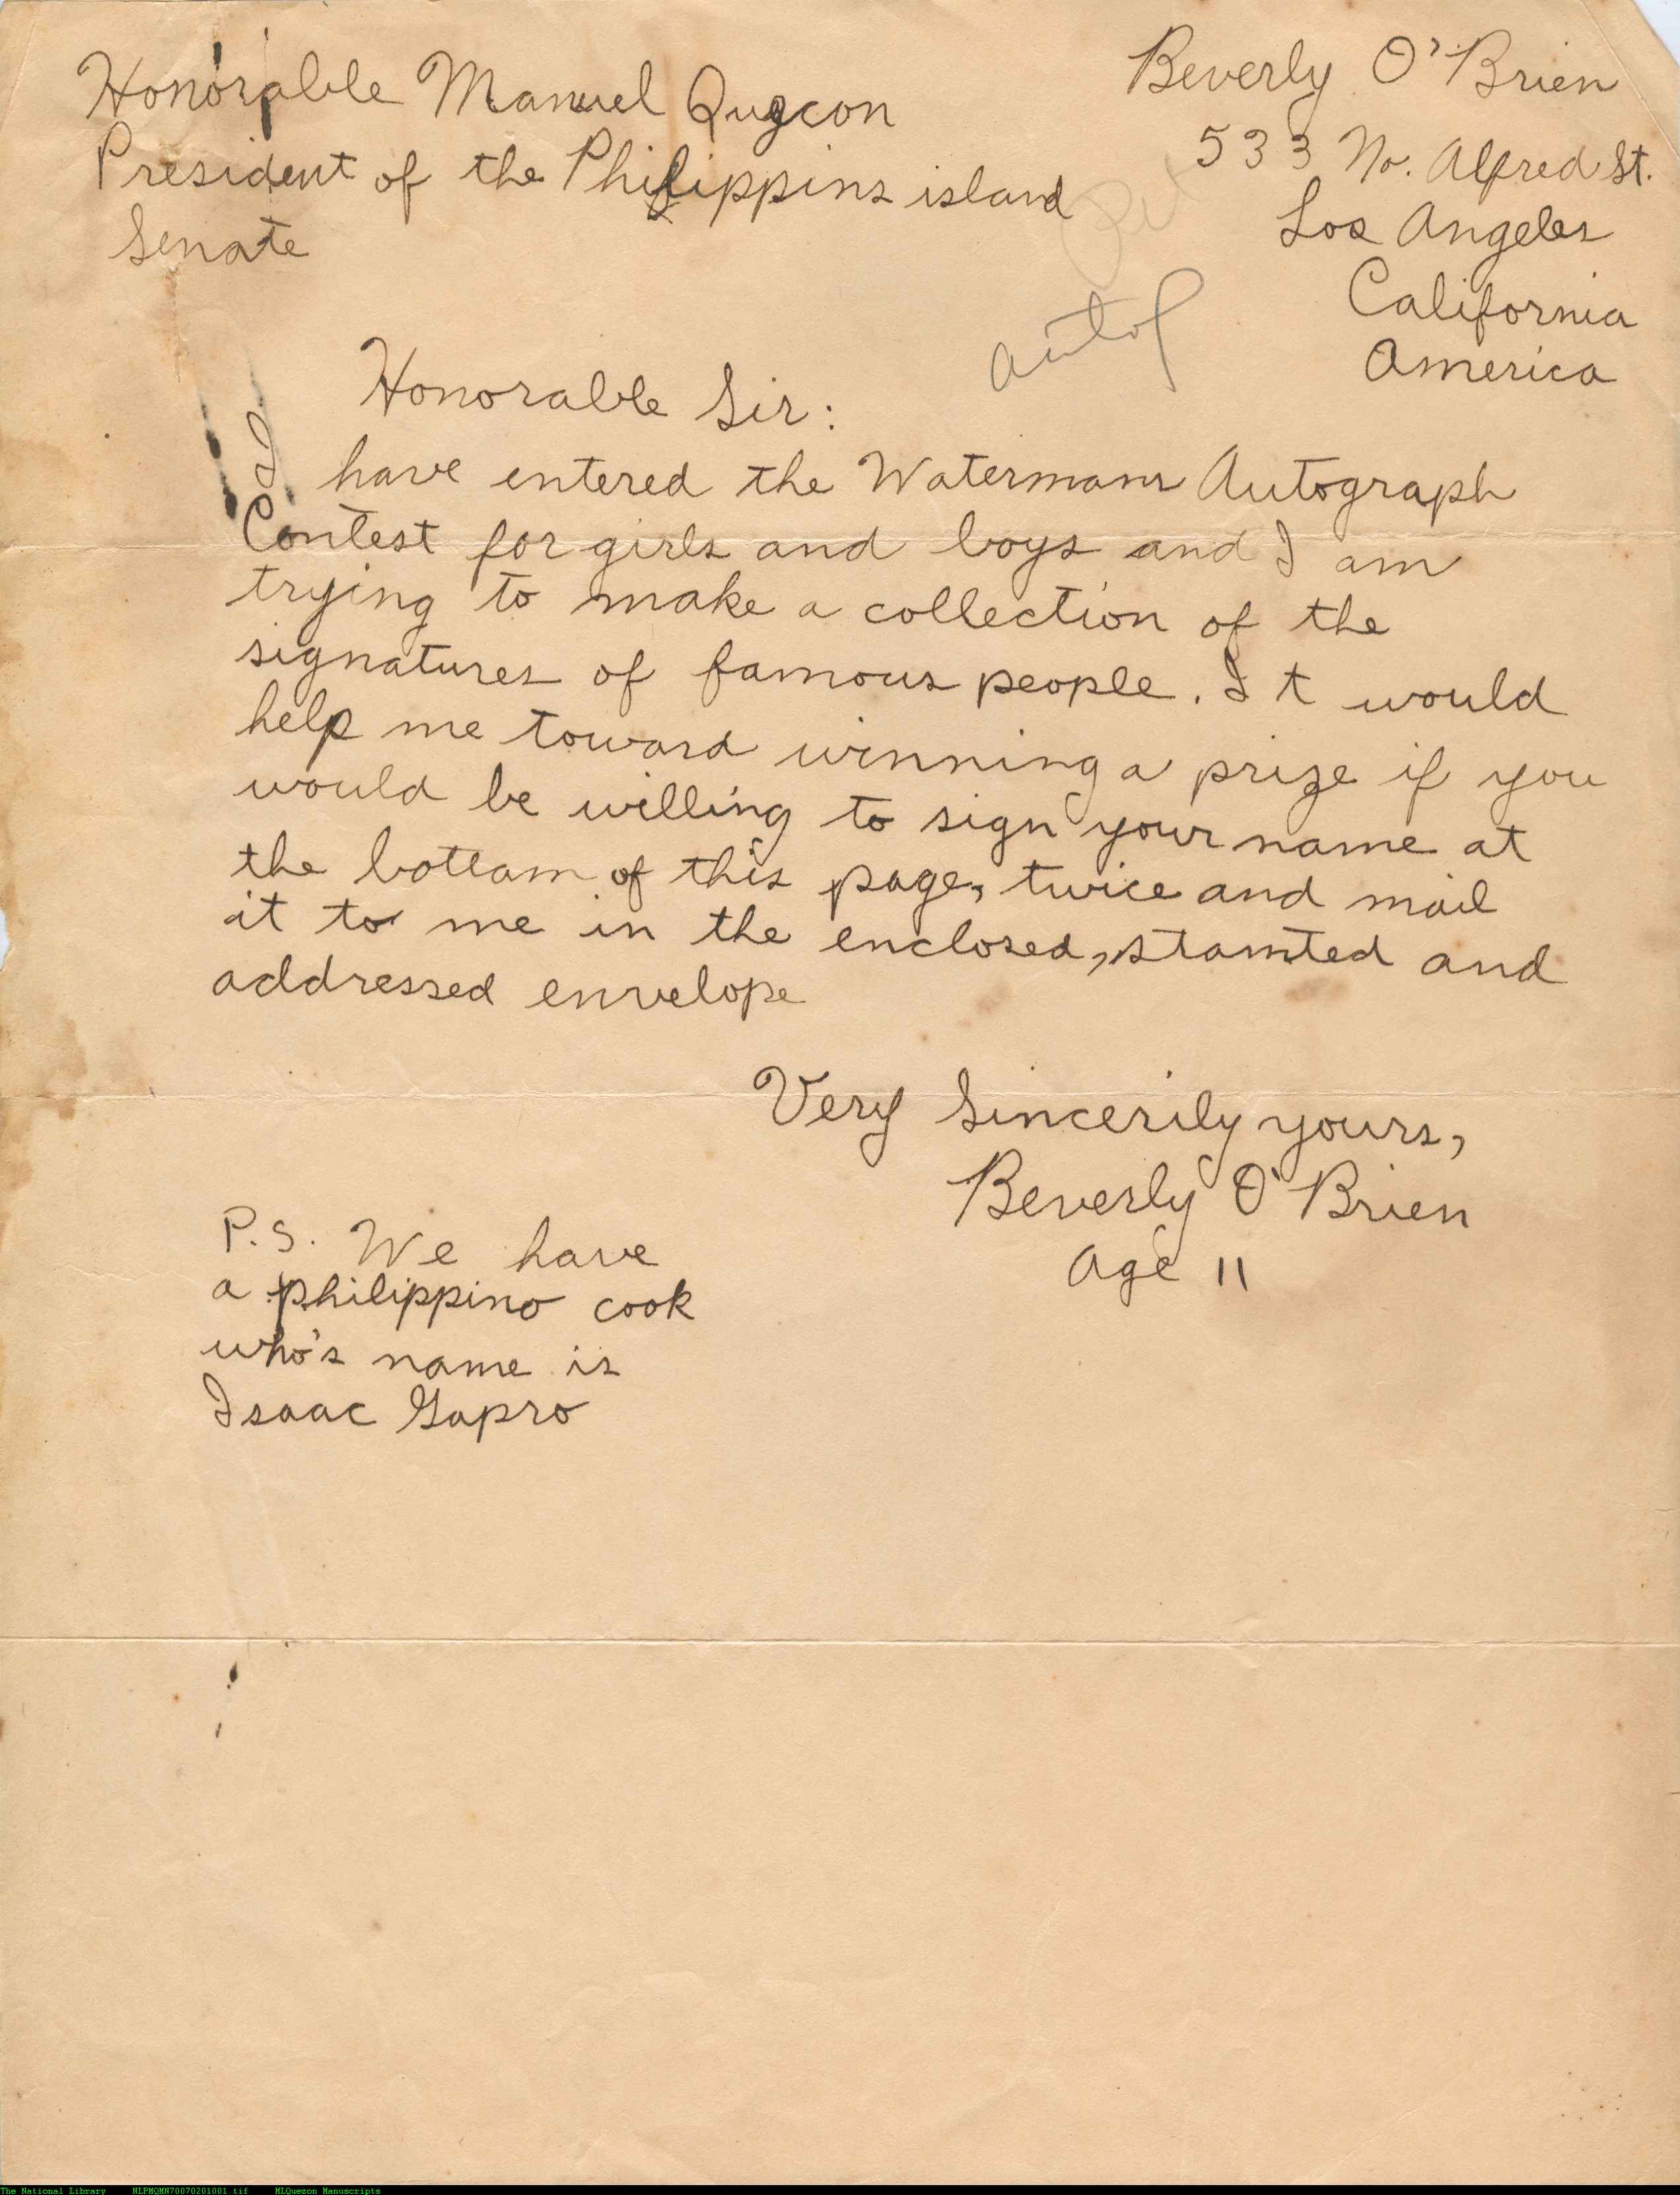 Honorable Manuel Qugcon
President of the Philippins island
Senate
Beverly O'Brien
533 No. Alfred St.
Los Angeles
California
America
autof
Honorable Sir:
I have entered the Watermans Autograph
Contest for girls and boys and I am
trying to make a collection of the
signatures of famous people. It would
help me toward winning a prize if you
would be willing to sign your name at
the bottam of this page, twice and mail
it to me in the enclosed, stamted and
addressed envelope
Very Sincerily yours,
Beverly O'Brien
age 11
P.S. We have
a philippino cook
who's name is
Isaac Gapro
The National Library NLPMQMN70070201001.tif MLQuezon Manuscripts